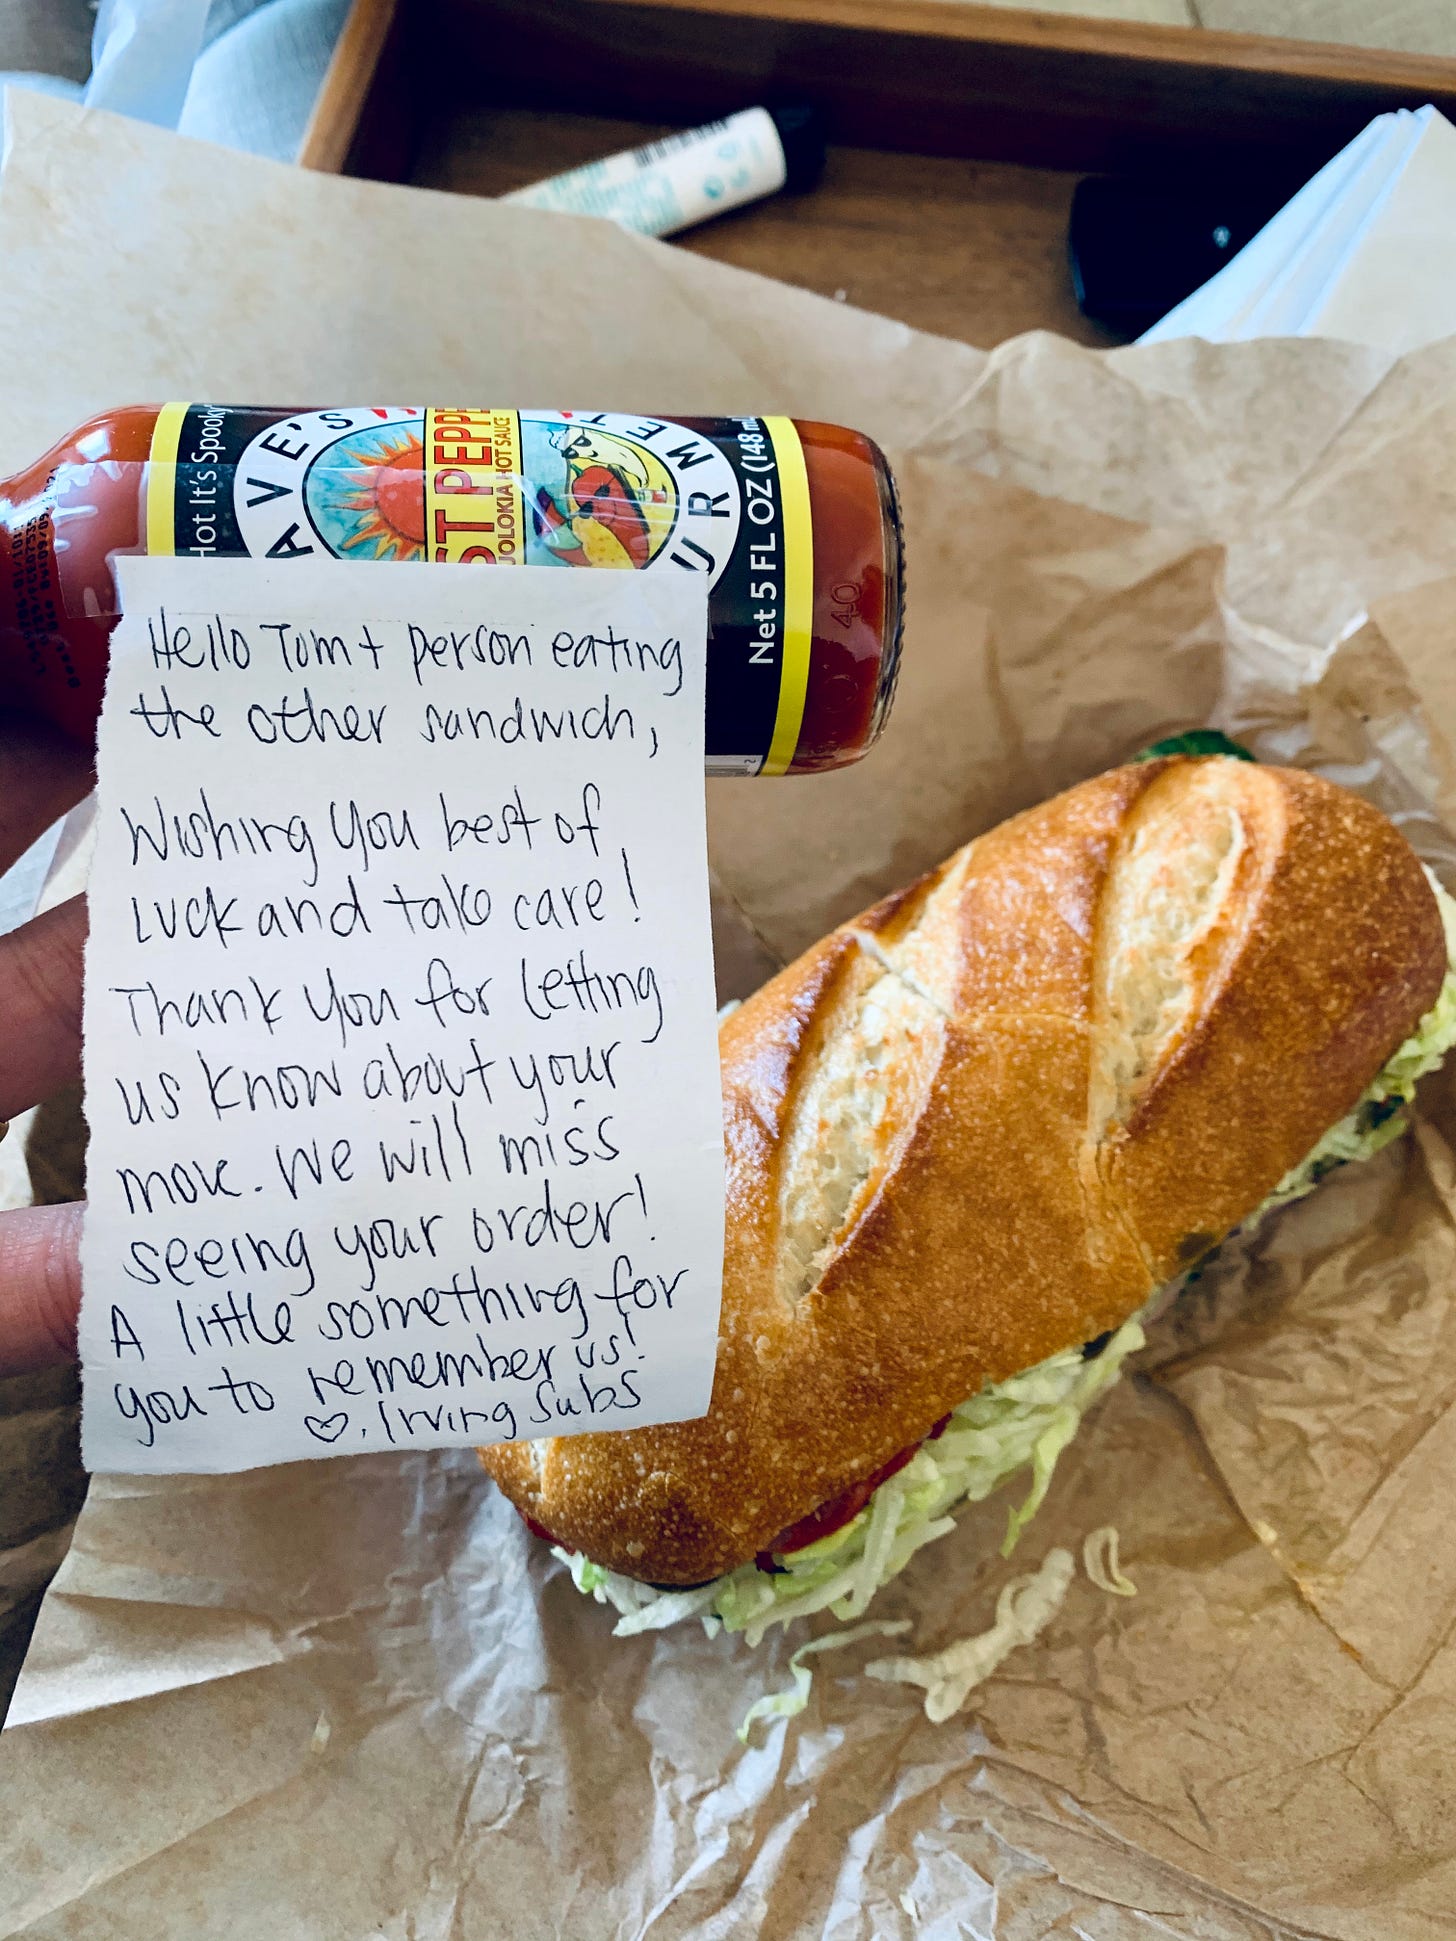 Hot It's Spooky
AVE'S
URMET
ST PEPPE
JOLOKIA HOT SAUCE
Net 5 FL OZ (148 mL
40
Hello Tom + person eating
the other sandwich,
Wishing you best of
luck and take care!
Thank you for letting
us know about your
move. We will miss
seeing your order!
A little something for
you to remember us!
♡. Irving Subs